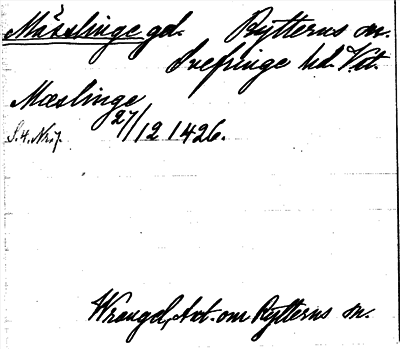 Mässlinge gd. Rytterns sn.
Snefringe hd. Vstm.
Mæslinge
27/12 1426.
S. H. Nr. 7.
Wrangel, Ant. om Rytterns sn.